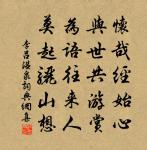 懷哉經始心
與世共游賞
為語往來人
莫起驪山想
李呂溫泉詞典網集